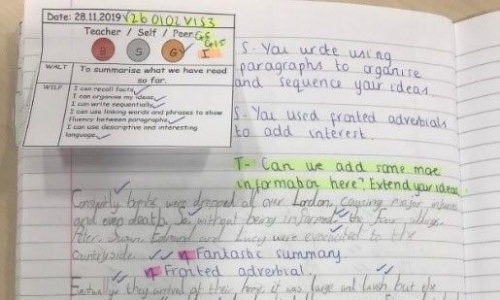 Date: 28.11.2019
Teacher / Self / Peer
B S G I
WALT To summarise what we have read so far.
WILF I can recall facts
I can organise my ideas
I can write sequentially
I can use linking words and phrases to show
fluency between paragraphs
I can use descriptive and interesting
language
S - You wrote using
paragraphs to organise
and sequence your ideas.
S - You used fronted adverbials
to add interest.
T - Can we add some more
information here? Extend your ideas
Constantly bombs were dropped all over London, causing major
and even death. So, without being informed, the four
Peter, Susan Edmund and Lucy were evacuated to the
countryside.
Fantastic summary.
Fronted adverbial.
they arrived at their home, it was large and lavish but the